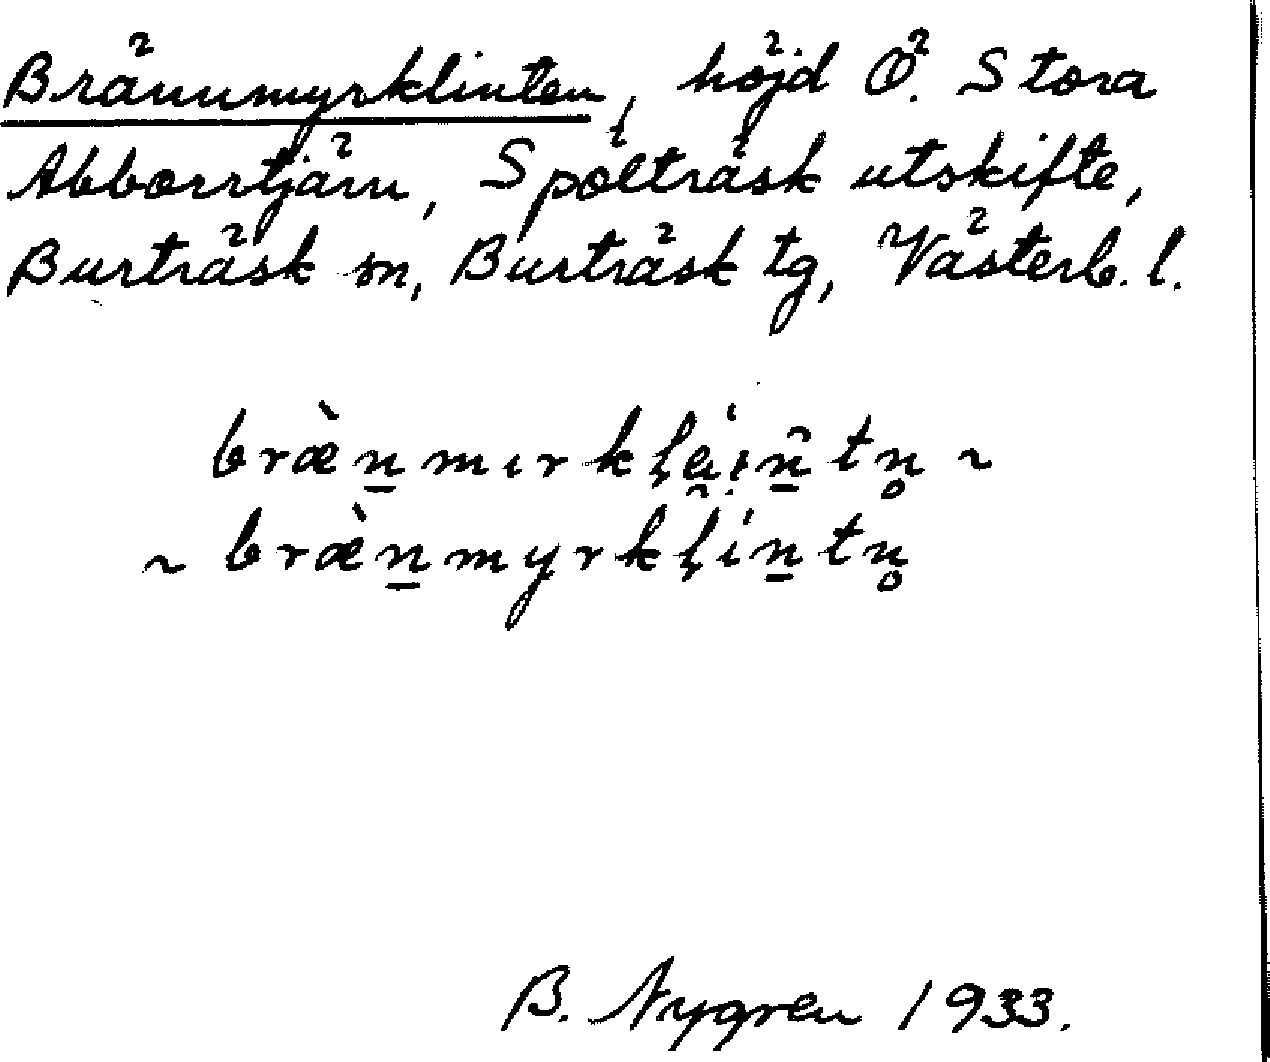 Brännmyrklinten, höjd Ö. Stora
Abborrtjärn, Spölträsk utskifte,
Burträsk sn, Burträsk tg, Västerb. l.
bræ̀n̠mırkḷa̰i̩n̠̑tn̥ ~
~ bræ̀n̠myrkḷin̠tn̥
B. Nygren 1933.